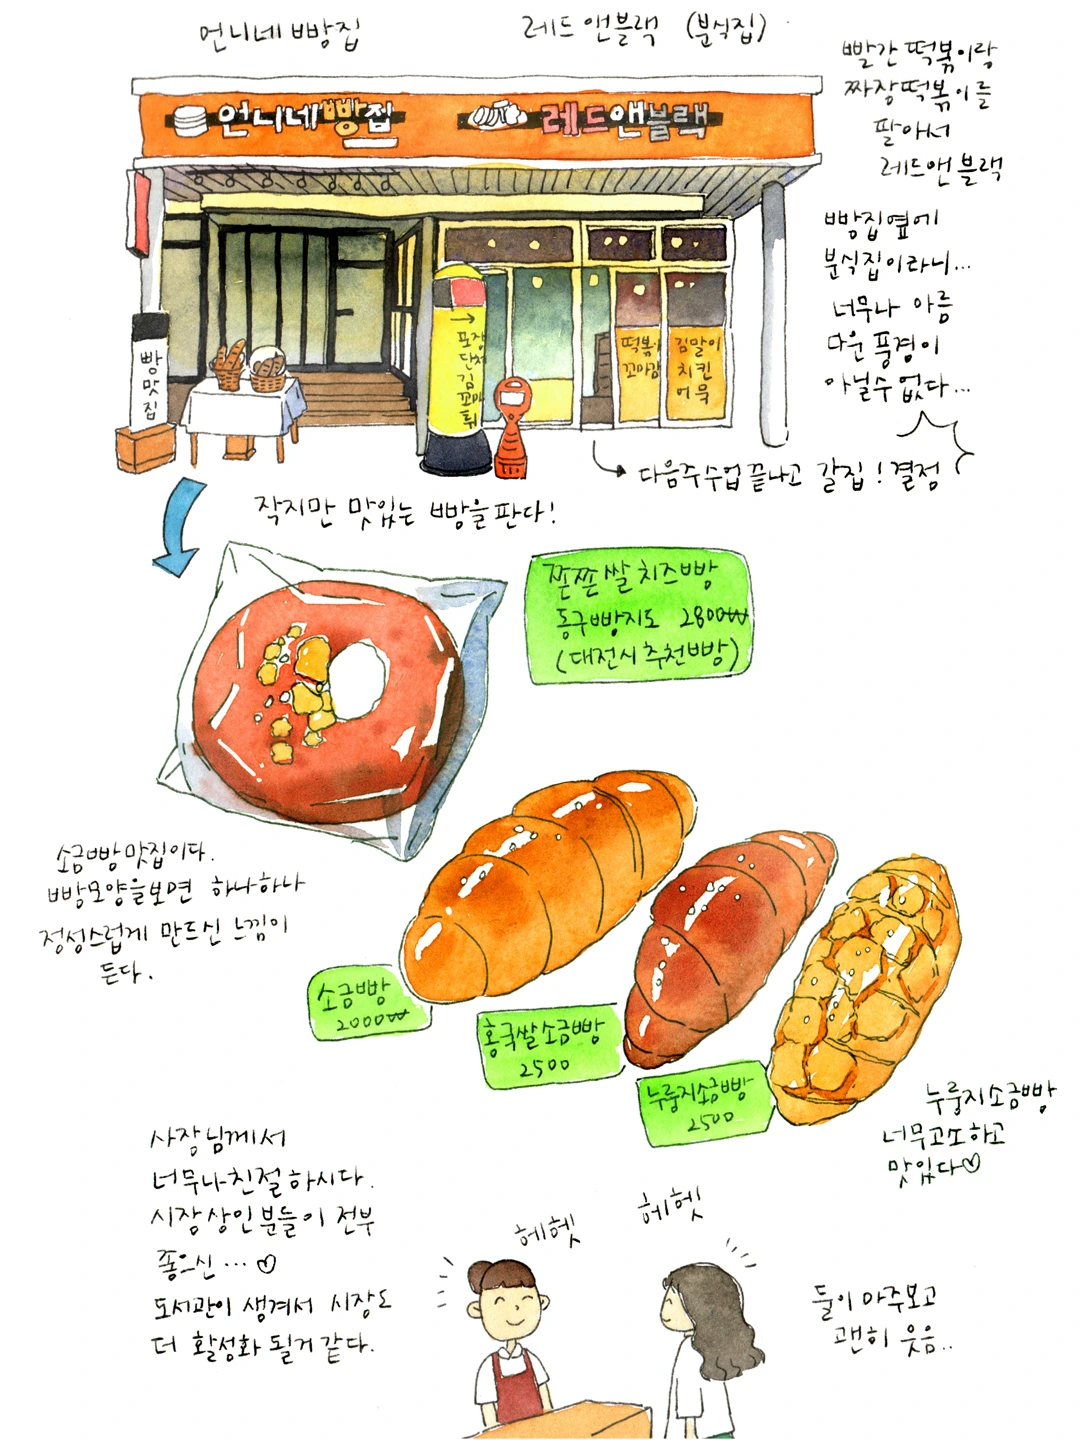 언니네 빵집
레드앤블랙 (분식집)
언니네빵집
레드앤블랙
빨간 떡볶이랑
짜장떡볶이를
팔아서
레드앤 블랙
빵집옆에
분식집이라니...
너무나 아름
다운 풍경이
아닐수 없다...
빵
맛
집
포장
단체
김
꼬마
튀
떡볶이
꼬마김
김말이
치킨
어묵
다음주 수업 끝나고 갈집! 결정
작지만 맛있는 빵을 판다!
쫀쫀쌀치즈빵
동구빵지도 2800₩
(대전시 추천빵)
소금빵 맛집이다.
빵모양을보면 하나하나
정성스럽게 만드신 느낌이
든다.
소금빵
2000₩
홍국쌀소금빵
2500
누룽지소금빵
2500
누룽지소금빵
너무고소하고
맛있다♡
사장님께서
너무나친절하시다.
시장상인분들이 전부
좋으신...♡
도서관이 생겨서 시장도
더 활성화 될거 같다.
헤헷
헤헷
둘이 마주보고
괜히 웃음..